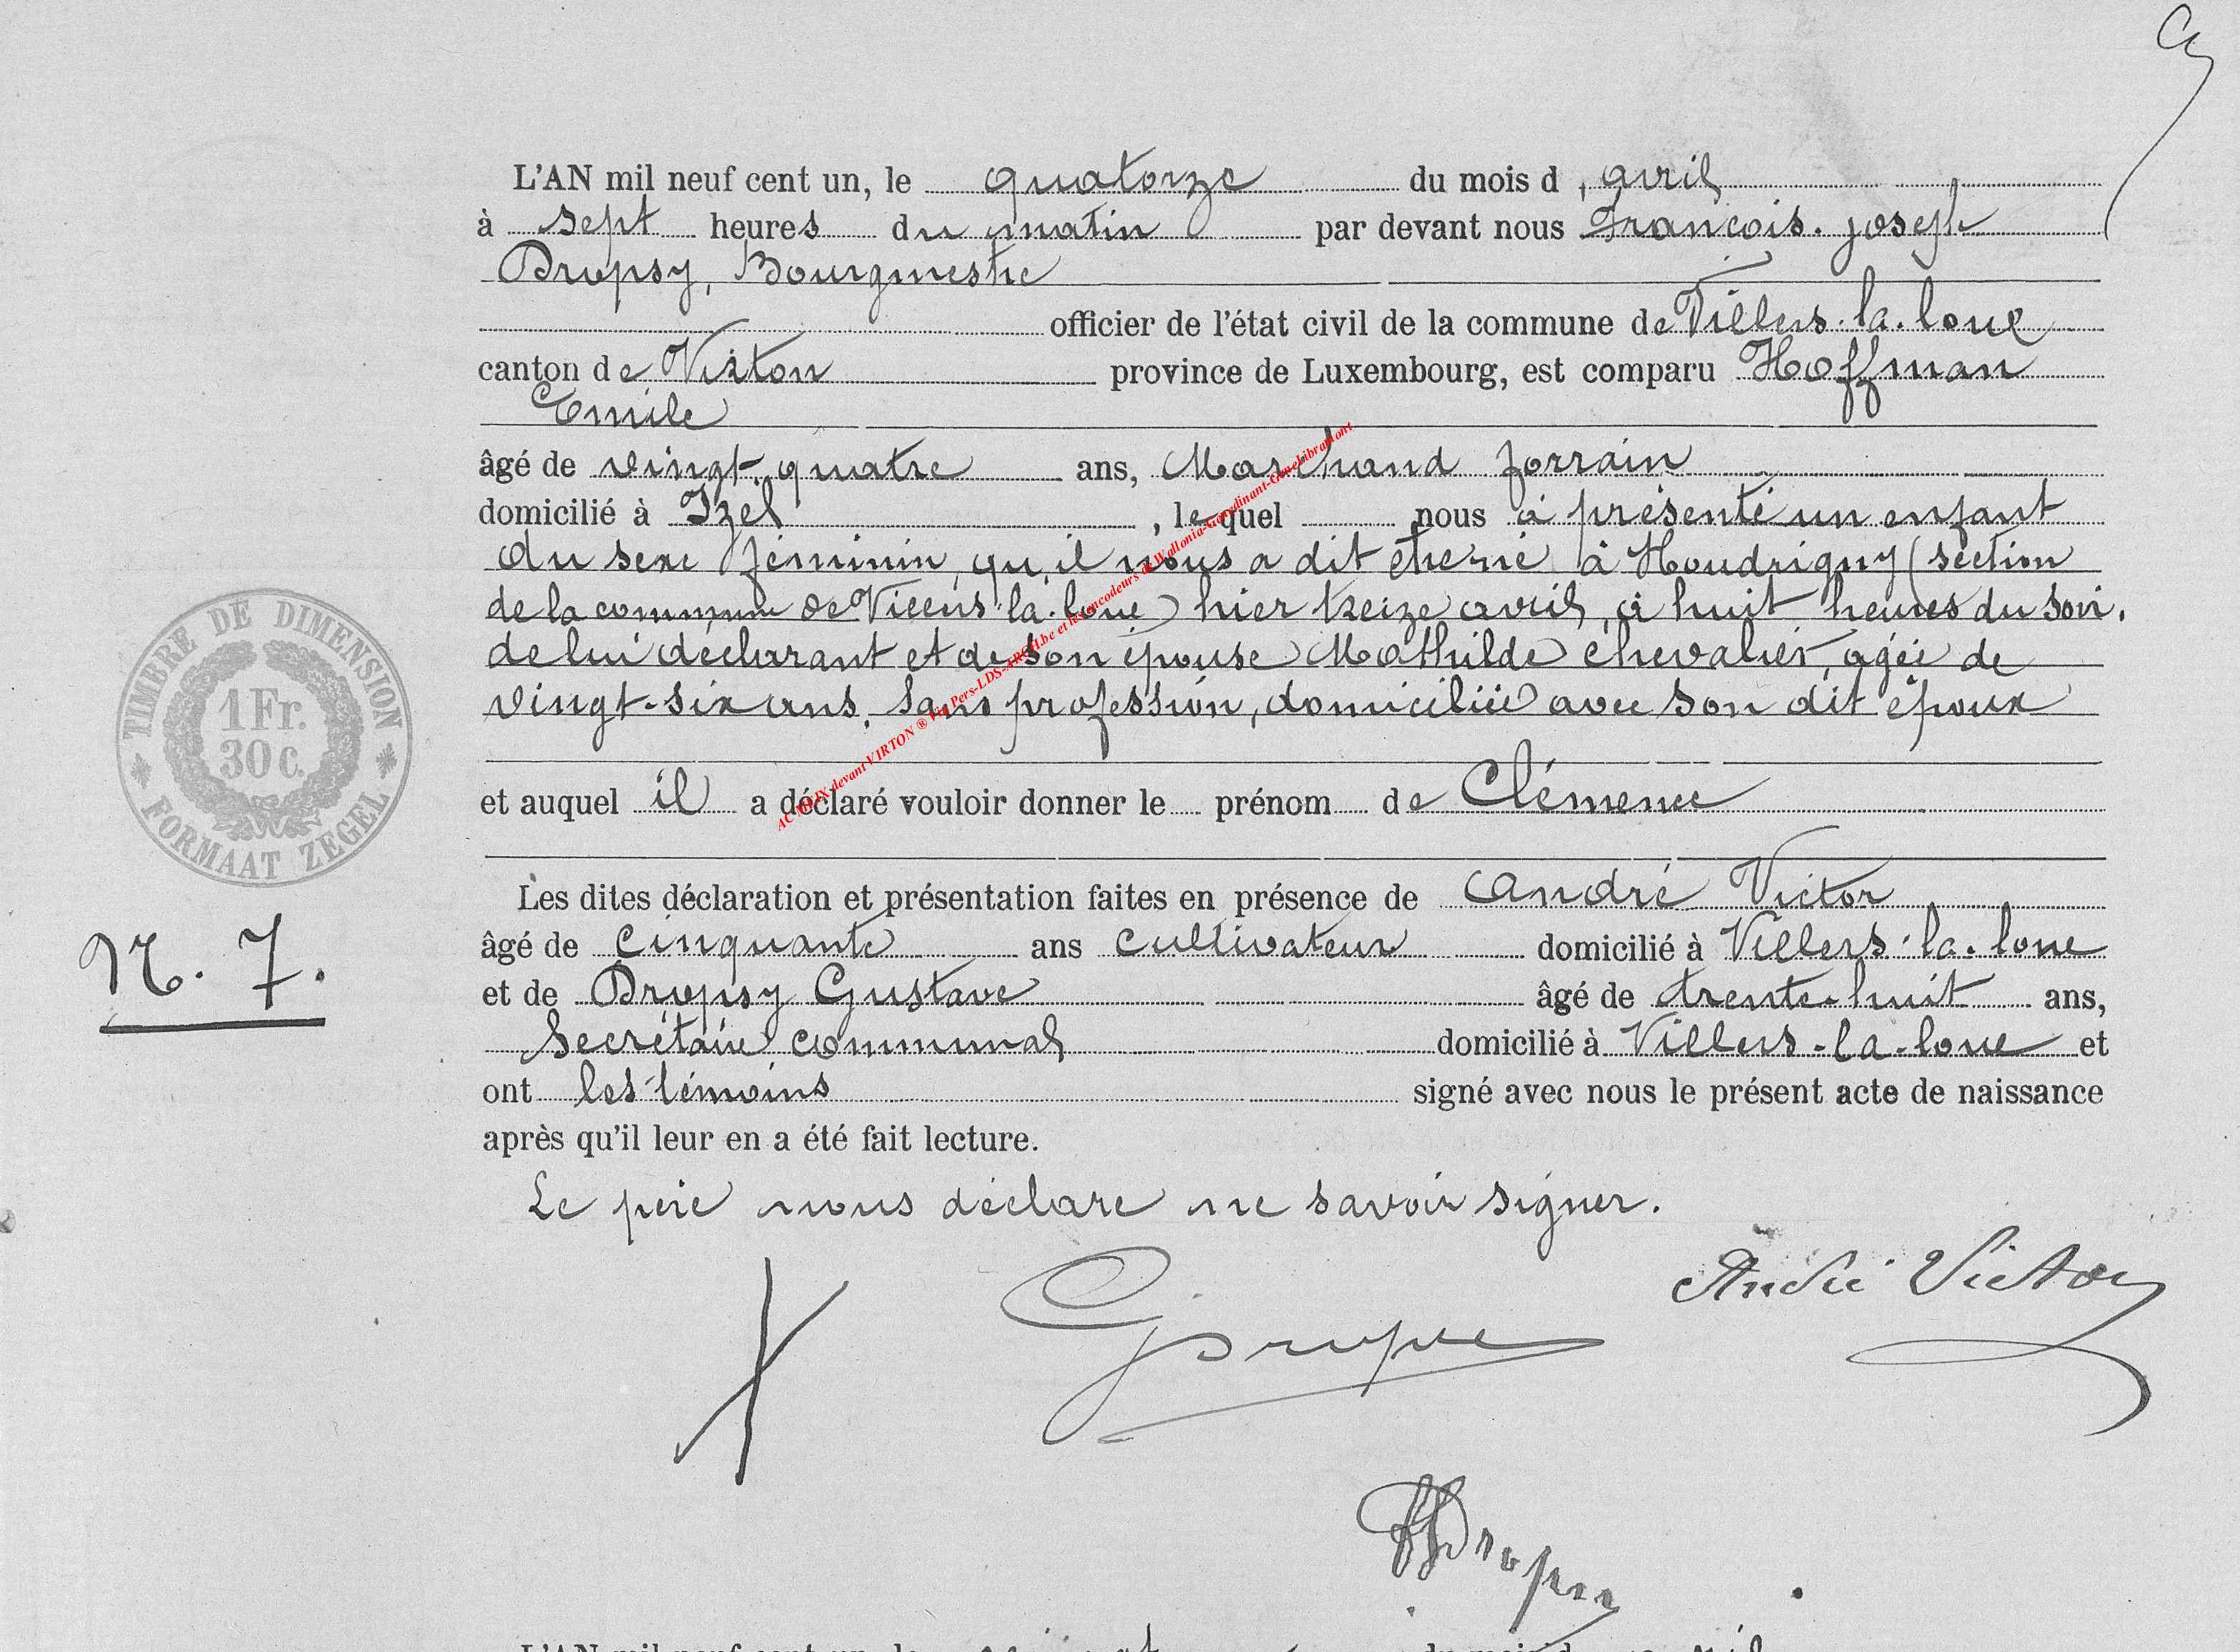 L'AN mil neuf cent un, le quatorze du mois d'avril
à sept heures du matin par devant nous François-joseph
Dropsy, Bourgmestre
officier de l'état civil de la commune de Villers-la-loue
canton de Virton province de Luxembourg, est comparu Hoffman
Emile
âgé de vingt-quatre ans, Marchand forrain
domicilié à Izel, lequel nous a présenté un enfant
du sexe féminin, qu'il nous a dit être né à Houdrigny (section
de la commune de Villers-la-loue) hier treize avril, à huit heures du soir.
de lui déclarant et de son épouse Mathilde chevalier, agée de
vingt-six ans, sans profession, domiciliée avec son dit époux
et auquel il a déclaré vouloir donner le prénom de Clémence
Les dites déclaration et présentation faites en présence de André Victor
âgé de cinquante ans cultivateur domicilié à Villers-la-loue
et de Dropsy Gustave âgé de trente-huit ans,
Secrétaire communal domicilié à Villers-la-loue et
ont les témoins signé avec nous le présent acte de naissance
après qu'il leur en a été fait lecture.
Le père nous déclare ne savoir signer.
André Victor
GDropsy
FJDropsy
TIMBRE DE DIMENSION
1 Fr.
30 c.
FORMAAT ZEGEL
N. 7.